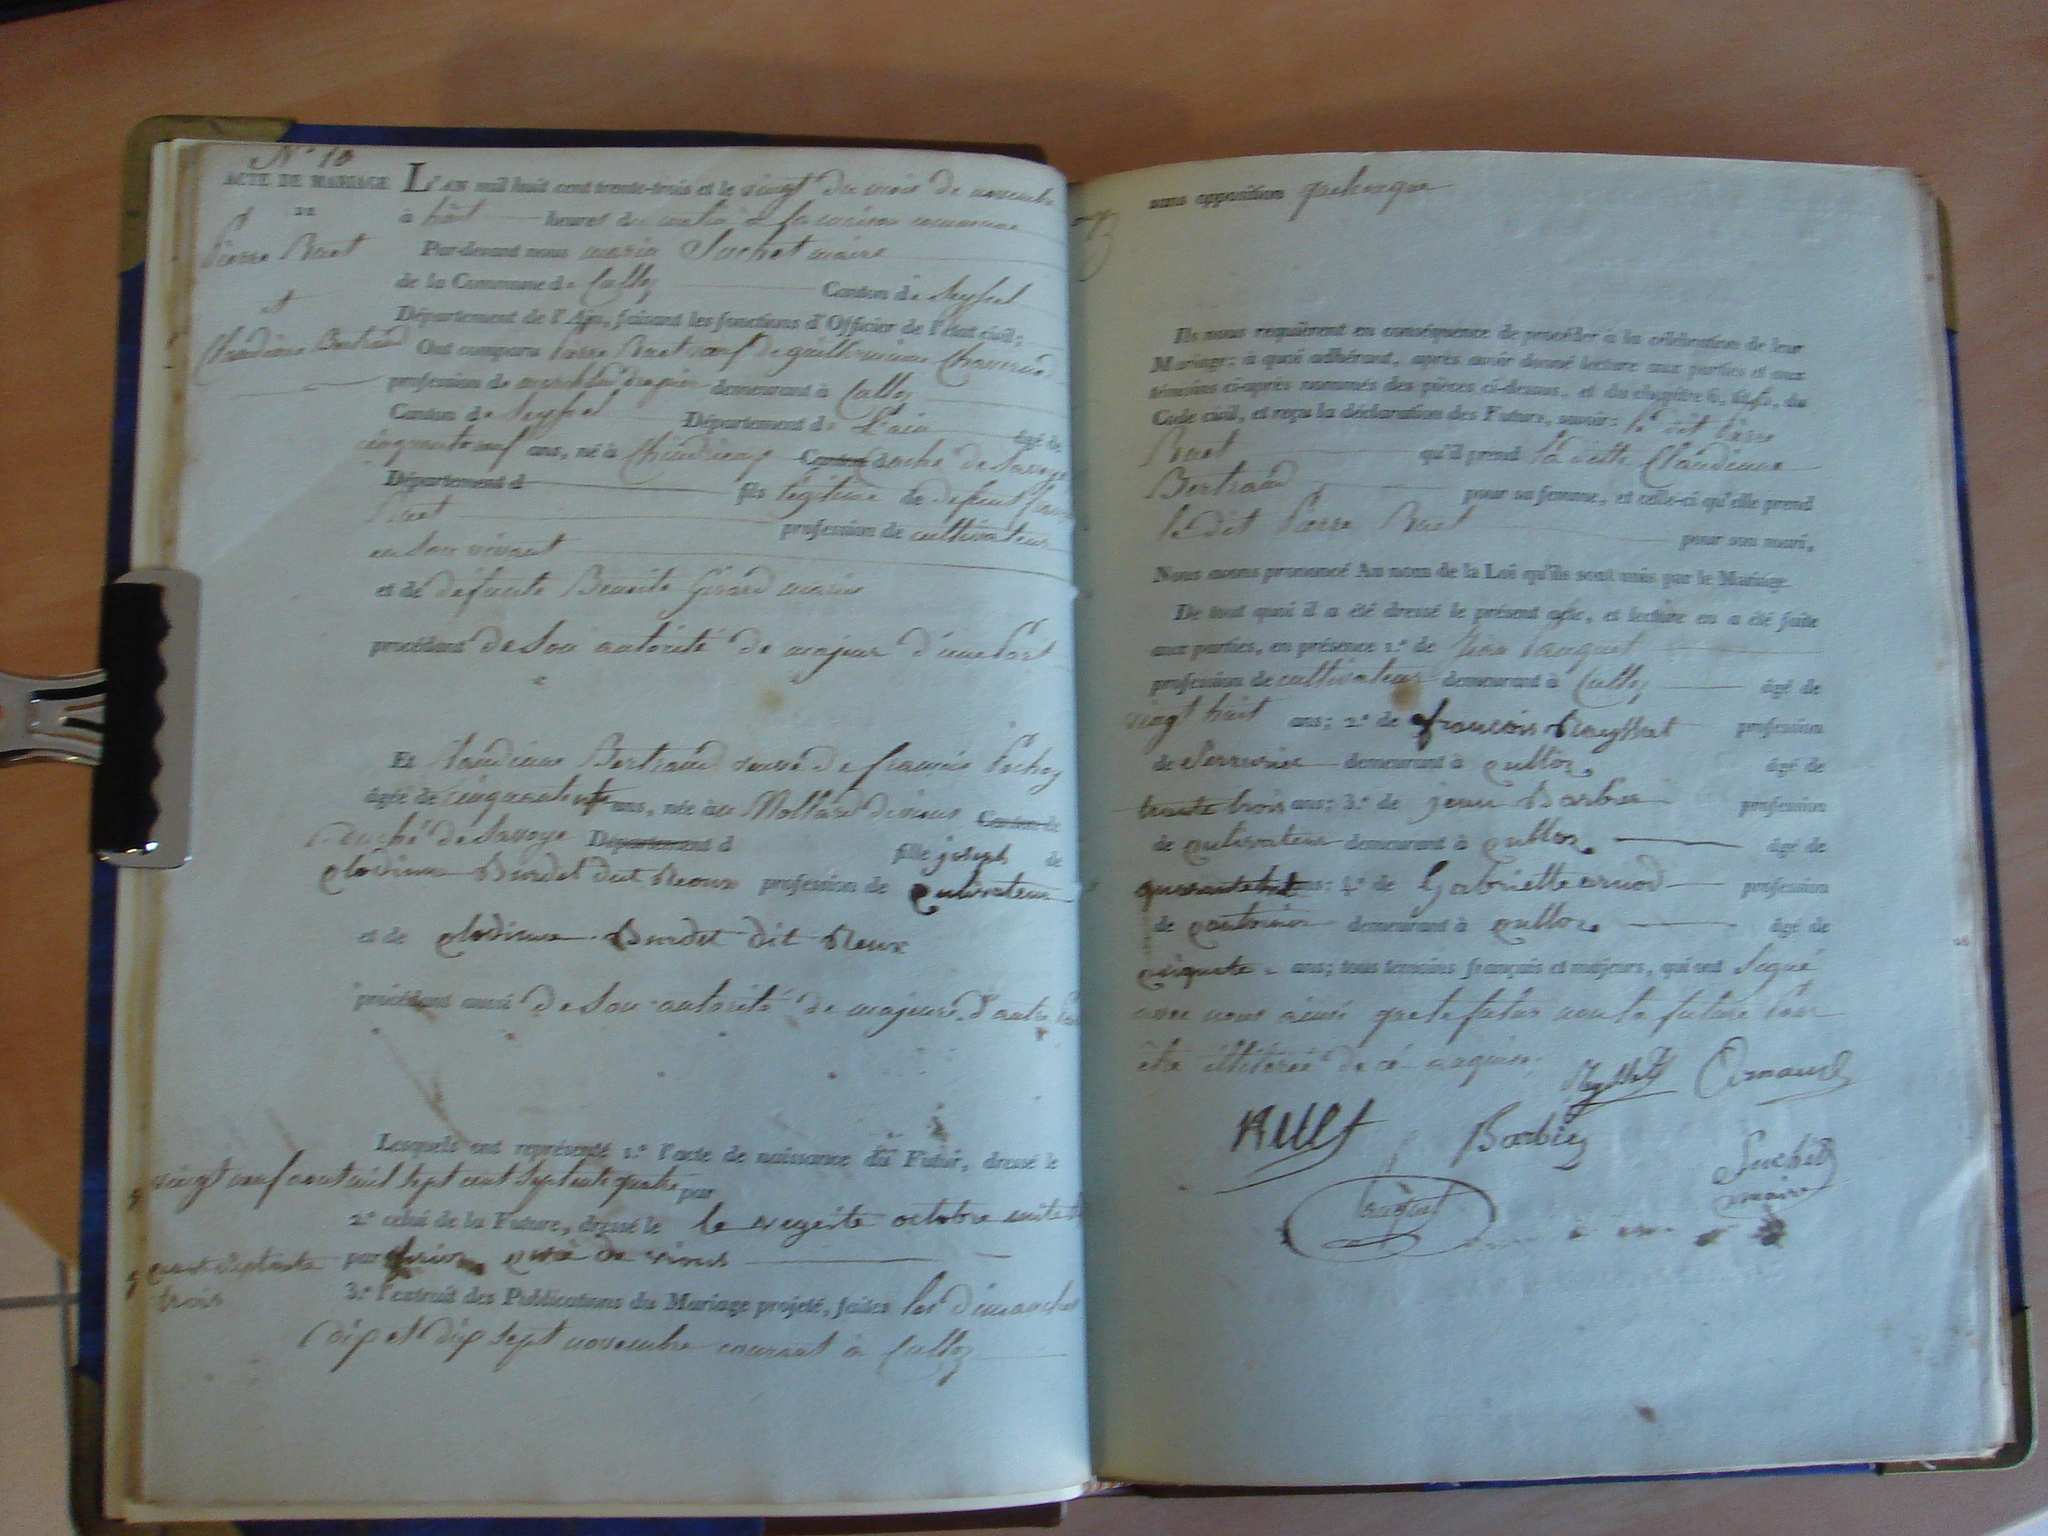 N° 10
ACTE DE MARIAGE
Pierre Buet
et
Claudine Bertrand
L'AN mil huit cent trente-trois et le vingt du mois de novembre
à huit heures du matin à la maison commune
Par-devant nous marin Suchet maire
de la Commune de Culloz Canton de Seyssel
Département de l'Ain, faisant les fonctions d'Officier de l'état civil;
Ont comparu Pierre Buet veuf de guillermine
profession de demeurant à Culloz
Canton de Seyssel Département de l'ain âgé de
cinquante neuf ans, né à Canton duché de Savoye
Département d fils légitime de defunt
Buet profession de cultivateur
en son vivant
et de défunte Benoite Girard mariés
procédant de son autorité de majeur d'une part
Et Claudine Bertrand veuve de françois Pochoy
âgée de cinquante ans, née au Mollard de vions Canton de
duché de Savoye Département d fille joseph de
clodine Burdet dit Reoux profession de cultivateur
et de clodine Burdet dit Reux
procédant aussi de son autorité de majeure d'autre part
Lesquels ont représenté 1.° l'acte de naissance du Futur, dressé le
vingt neuf aout mil sept cent septente quatre par
2.° celui de la Future, dressé le le octobre
cent septante par curé de vions
trois
3.° l'extrait des Publications du Mariage projeté, faites les dimanches
dix et dix sept novembre courant à Culloz
sans opposition quelconque
Ils nous requièrent en conséquence de procéder à la célébration de leur
Mariage; à quoi adhérant, après avoir donné lecture aux parties et aux
témoins ci-après nommés des pièces ci-dessus, et du chapitre 6, tit. 5, du
Code civil, et reçu la déclaration des Futurs, savoir: le dit Pierre
Buet qu'il prend la ditte Claudine
Bertrand pour sa femme, et celle-ci qu'elle prend
le dit Pierre Buet pour son mari,
Nous avons prononcé Au nom de la Loi qu'ils sont unis par le Mariage.
De tout quoi il a été dressé le présent acte, et lecture en a été faite
aux parties, en présence 1.° de Jean
profession de cultivateur demeurant à Culloz âgé de
vingt huit ans; 2.° de francois Reysset profession
de Serrurier demeurant à culloz âgé de
trante trois ans; 3.° de jean Barbier profession
de cultivateur demeurant à culloz âgé de
quarante huit ans; 4.° de Gabriel arnod profession
de demeurant à culloz âgé de
ans; tous témoins français et majeurs, qui ont signé
avec nous ainsi que le futur non la future pour
être illitérée de ce enquise.
Arnaud
Buet
Barbier
Suchet
maire